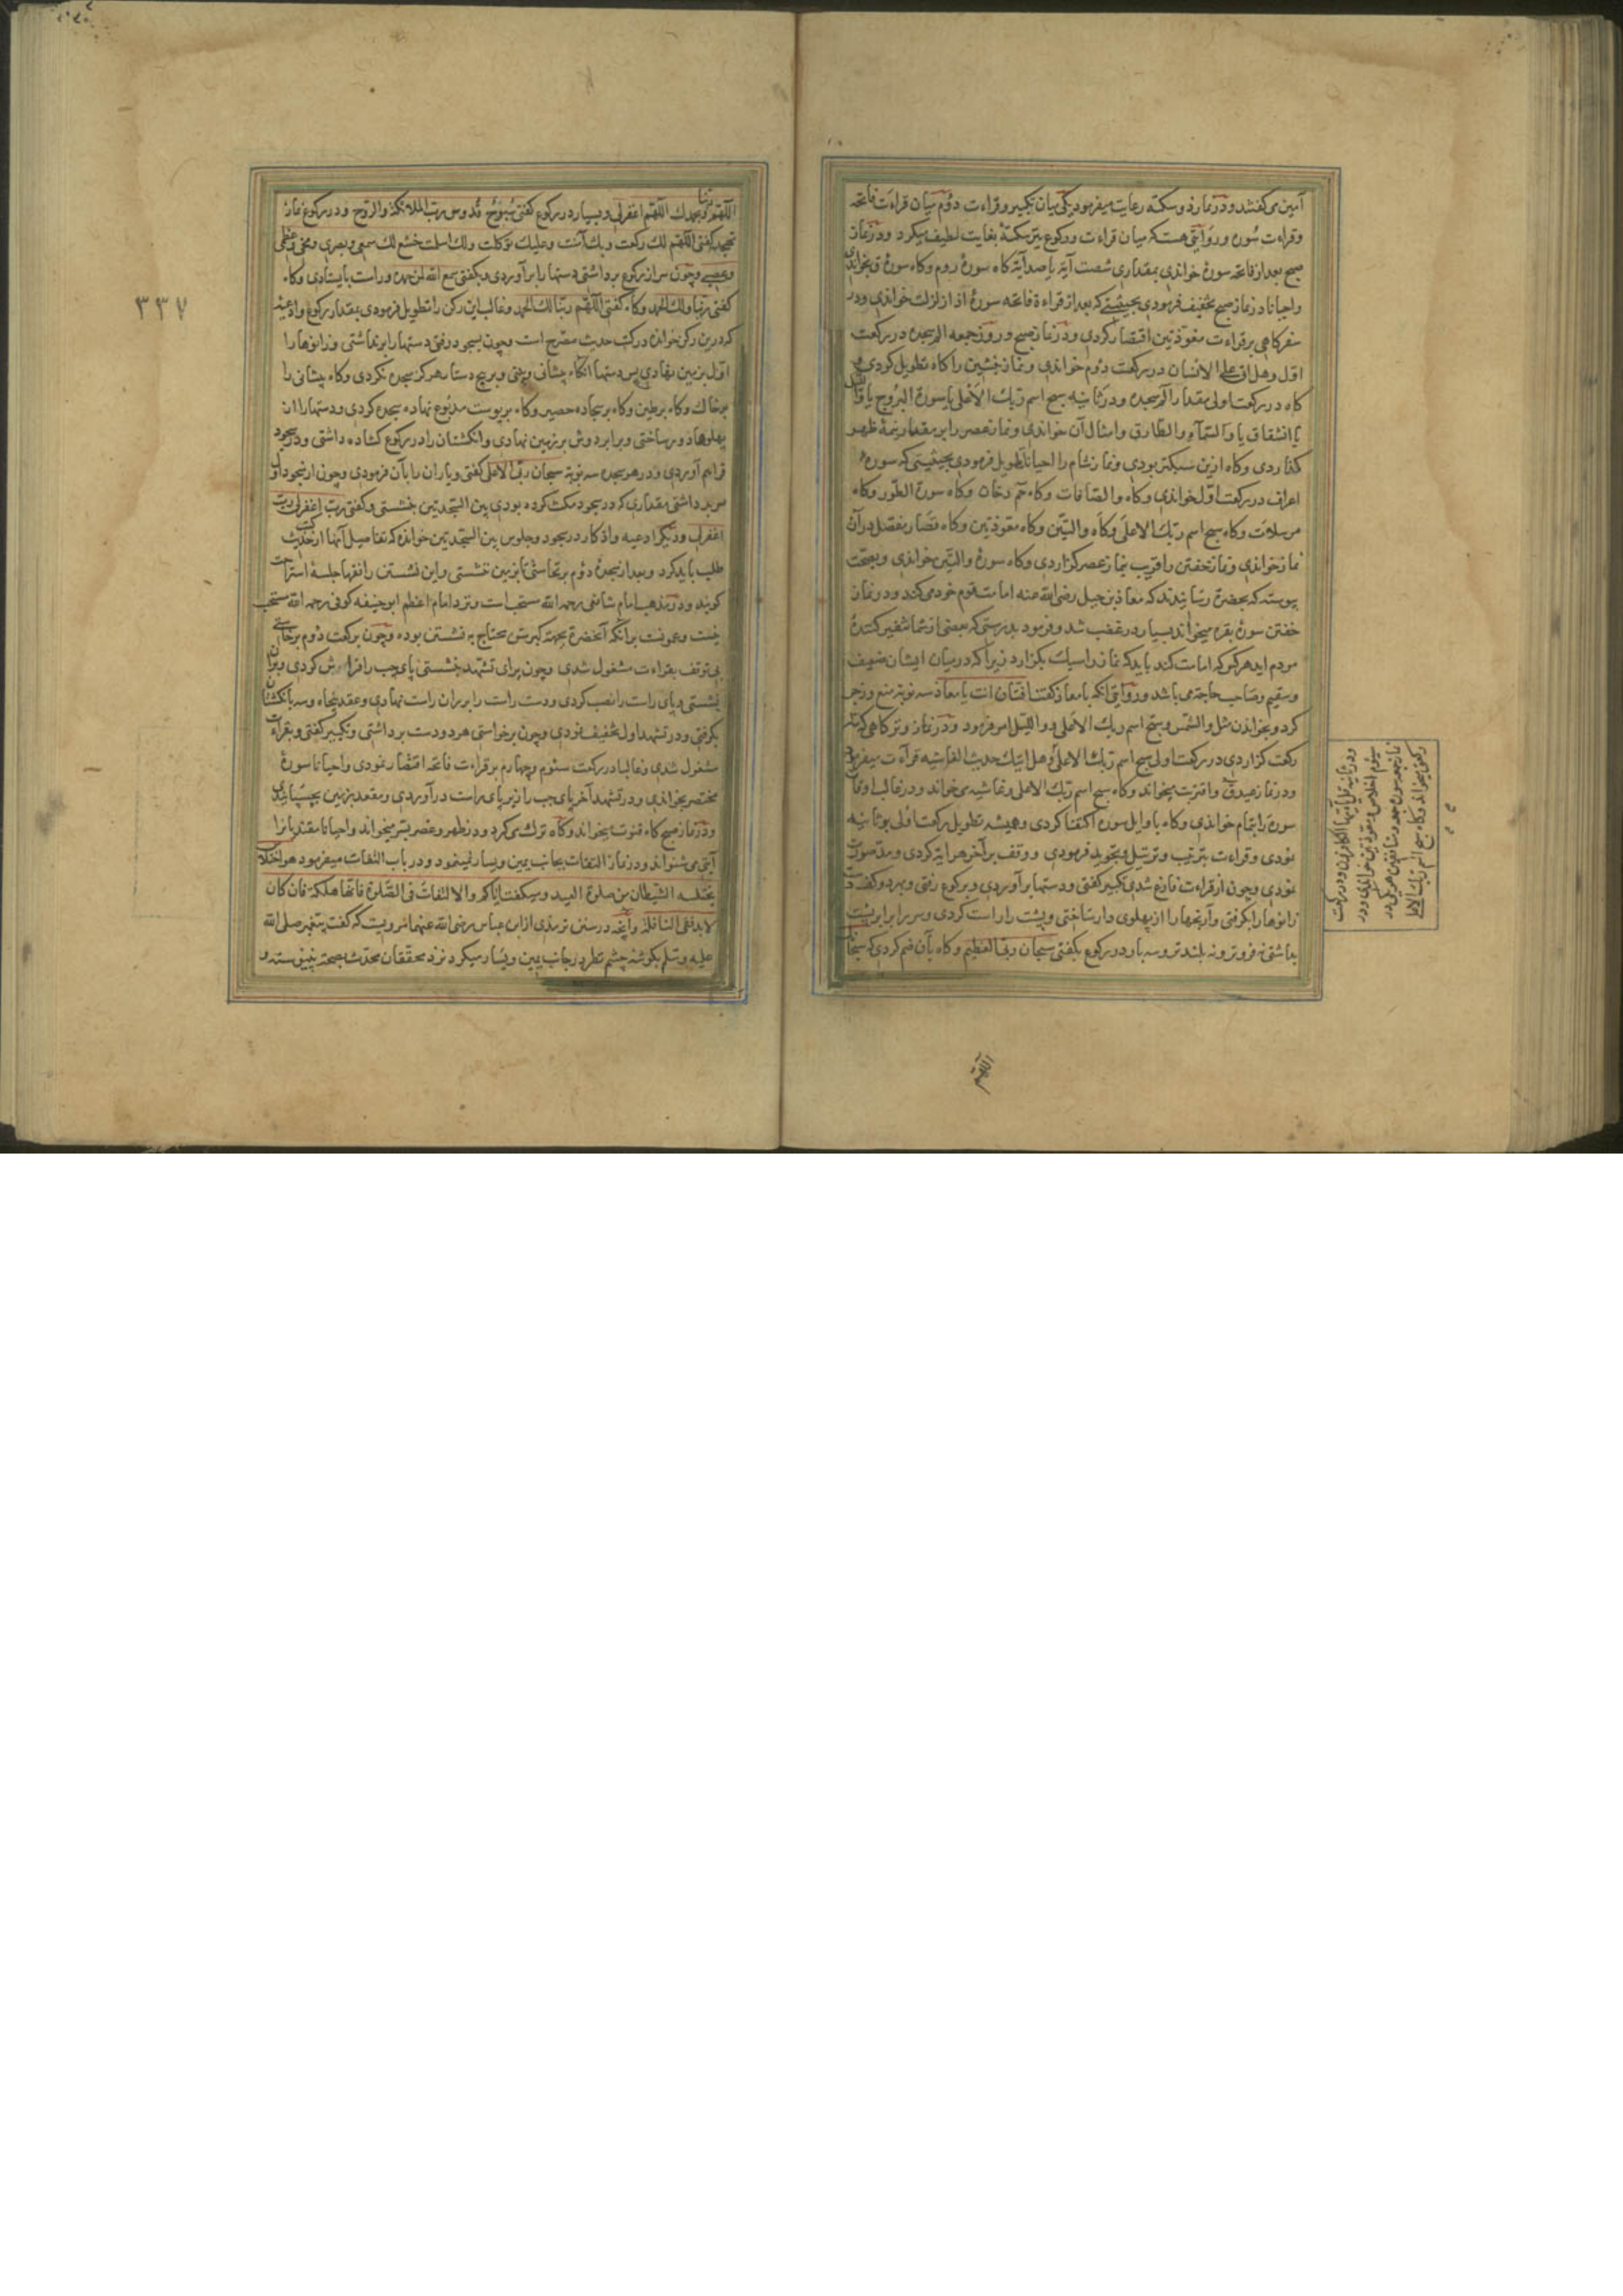 آمین می گفتند و در نماز دو سکته رعایت میفرمود یکی میان تکبیر و قراءت دوم میان قراءت فاتحه
و قراءت سوره و روایتی هست که میان قراءت و رکوع نیز سکتهٔ بغایت لطیف میکرد و در نماز
صبح بعد از فاتحه سورهٔ خواندی بمقداری شصت آیة یا صد آیة گاه سورهٔ روم و گاه سورهٔ ق بخواندی
و احیانا در نماز صبح تخفیف فرمودی بحیثیتی که بعد از قراءة فاتحه سورهٔ اذا زلزلت خواندی و در
سفر گاهی بر قراءت معوذتین اقتصار کردی و در نماز صبح و روز جمعه الم سجده در رکعت
اول و هل اتی علی الانسان در رکعت دوم خواندی و نماز پیشین را گاه تطویل کردی
گاه در رکعت اولی بمقدار الم سجده و در ثانیه سبح اسم ربک الاعلی یا سورة البروج یا واللیل
یا انشقاق یا والسماء والطارق و امثال آن خواندی و نماز عصر را بر مقدار نیمهٔ ظهر
گذاردی و گاه ازین سبکتر بودی و نماز شام را احیانا تطویل فرمودی بحیثیتی که سوره
اعراف در رکعت اول خواندی و گاه والصافات و گاه حم دخان و گاه سورة الطور و گاه
مرسلات و گاه سبح اسم ربک الاعلی و گاه والتین و گاه معوذتین و گاه قصار مفصل در آن
نماز خواندی و نماز خفتن را قریب بنماز عصر گزاردی و گاه سورهٔ والتین خواندی و بصحت
پیوسته که بحضرة رسانیدند که معاذ بن جبل رضی الله عنه امامت قوم خود می کند و در نماز
خفتن سورهٔ بقره میخواند بسیار در غضب شد و فرمود بدرستی که بعضی از شما تنفیر کنندهٔ
مردم اید هر کو که امامت کند باید که نماز را سبک بگزارد زیرا که در میان ایشان ضعیف
و سقیم و صاحب حاجة می باشد و روایتی آنکه با معاذ گفت افتان انت یا معاذ سه نوبة منع و زجر
کرد و بخواندن مثل والشمس و سبح اسم ربک الاعلی و واللیل امر فرمود و در نماز وتر گاهی که سه
رکعت گزاردی در رکعت اولی سبح اسم ربک الاعلی و هل اتیک حدیث الغاشیه قراءت میفرمود
و در نماز عید ق و اقتربت میخواند و گاه سبح اسم ربک الاعلی و غاشیه می خواند و در غالب اوقات
سوره را بتمام خواندی و گاه باوایل سوره اکتفا کردی و همیشه تطویل رکعت اولی بر ثانیه
نمودی و قراءت بترتیب و ترتیل و تجوید فرمودی و وقف بر آخر هر آیه کردی و مد صوت
نمودی و چون از قراءت فارغ شدی تکبیر گفتی و دستها برآوردی و برکوع رفتی و بهر دو کف دست
زانوها را بگرفتی و آرنجها را از پهلوی وا ساختی و پشت را راست کردی و سر برابر پشت
بداشتی نه فروتر و نه بلندتر و سه بار در رکوع بگفتی سبحان ربی العظیم و گاه بآن ضم کردی که سبحانک
و در ثانیه قل یا ایها الکافرون و در رکعت
سیوم اخلاص و معوذتین خواندی و در
نماز جمعه سوره جمعه و منافقین هر یکی در
رکعتی میخواند و گاه سبح اسم ربک الاعلی
اللهم
٣٣٧
اللهم ربنا و بحمدک اللهم اغفر لی و بسیار در رکوع گفتی سبوح قدوس رب الملائکة والروح و در رکوع نماز
تهجد گفتی اللهم لک رکعت و بک آمنت و علیک توکلت و لک اسلمت خشع لک سمعی و بصری و مخی و عظمی
و عصبی و چون سر از رکوع برداشتی دستها را برآوردی و بگفتی سمع الله لمن حمده و راست بایستادی و گاه
گفتی ربنا و لک الحمد و گاه گفتی اللهم ربنا لک الحمد و غالب این رکن را تطویل فرمودی بمقدار رکوع و ادعیه
که درین رکن خوانده در کتب حدیث مصرح است و چون بسجود رفتی دستها را برنداشتی و زانوها را
اول بزمین نهادی پس دستها آنگاه پیشانی و بینی و بر پیچ دستار هرگز سجده نکردی و گاه پیشانی را
بر خاک و گاه بر طین و گاه بر سجاده حصیر و گاه بر پوست مدبوغ نهاده سجده کردی و دستها را از
پهلوها دور ساختی و برابر دوش بر زمین نهادی و انگشتان را در رکوع گشاده داشتی و در سجود
فراهم آوردی و در هر سجده سه نوبة سبحان ربی الاعلی گفتی و یاران را بآن فرمودی و چون از سجود اول
سر برداشتی مقداری که در سجود مکث کرده بودی بین السجدتین بنشستی و گفتی رب اغفر لی رب
اغفر لی و دیگر ادعیه و اذکار در سجود و جلوس بین السجدتین خوانده که تفاصیل آنها از کتب حدیث
طلب باید کرد و بعد از سجدهٔ دوم برنخاستی تا بزمین ننشستی و این نشستن را فقها جلسهٔ استراحت
گویند و در مذهب امام شافعی رحمه الله مستحب است و نزد امام اعظم ابو حنیفه کوفی رحمه الله مستحب
نیست و برآنکه آنحضرة بجهة کبر سن محتاج به نشستن بوده و چون برکعت دوم برخاستی
بی توقف بقراءت مشغول شدی و چون برای تشهد بنشستی پای چپ را فراش کردی و بر آن
نشستی و پای راست را نصب کردی و دست راست را بر ران راست نهادی و عقد پنجاه و سه بانگشتان
بگرفتی و در تشهد اول تخفیف نمودی و چون برخواستی هر دو دست برداشتی و تکبیر گفتی و بقراءت
مشغول شدی و غالبا در رکعت سئوم و چهارم بر قراءت فاتحه اقتصار نمودی و احیانا سورهٔ
مختصر بخواندی و در تشهد آخر پای چپ را زیر پای راست درآوردی و مقعد بزمین بچسپانیدی
و در نماز صبح گاه قنوت بخواند و گاه ترک می کرد و در ظهر و عصر بسر میخواند و احیانا مقتدیانرا
آیتی می شنواند و در نماز التفات بجانب یمین و یسار نمینمود و در باب التفات میفرمود هو اختلاس
یختلسه الشیطان من صلوة العبد و میگفت ایاکم والالتفات فی الصلوة فانها هلکة فان کان
لا بد ففی النافلة و آنچه در سنن ترمذی از ابن عباس رضی الله عنهما مرویست که گفت پیغمبر صلی الله
علیه و سلم بگوشهٔ چشم نظر در جانب یمین و یسار میکرد نزد محققان محدث بصحة نپیوسته و